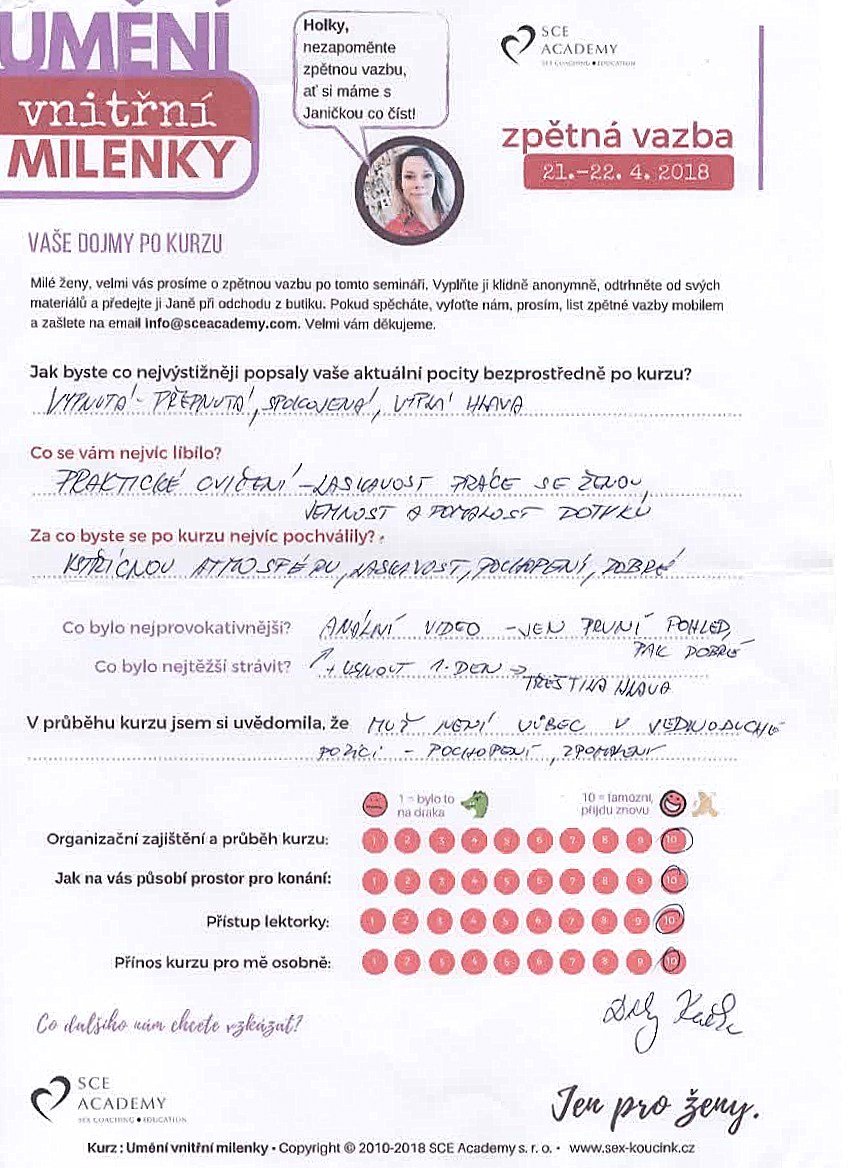 UMĚNÍ
vnitřní
MILENKY
Holky,
nezapoměnte
zpětnou vazbu,
ať si máme s
Janičkou co číst!
SCE
ACADEMY
SEX COACHING ● EDUCATION
zpětná vazba
21.–22. 4. 2018
VAŠE DOJMY PO KURZU
Milé ženy, velmi vás prosíme o zpětnou vazbu po tomto semináři. Vyplňte ji klidně anonymně, odtrhněte od svých
materiálů a předejte ji Janě při odchodu z butiku. Pokud spěcháte, vyfoťte nám, prosím, list zpětné vazby mobilem
a zašlete na email info@sceacademy.com. Velmi vám děkujeme.
Jak byste co nejvýstižněji popsaly vaše aktuální pocity bezprostředně po kurzu?
VYPNUTÁ - PŘEPNUTÁ, SPOKOJENÁ, HLAVA
Co se vám nejvíc líbilo?
PRAKTICKÉ CVIČENÍ - LASKAVOST PRÁCE SE ŽENOU,
JEMNOST A POMALOST DOTYKŮ
Za co byste se po kurzu nejvíc pochválily?
VSTŘÍCNOU ATMOSFÉRU, LASKAVOST, POCHOPENÍ, DOBRÉ
Co bylo nejprovokativnější? ANÁLNÍ VIDEO - JEN PRVNÍ POHLED,
PAK DOBRÉ
Co bylo nejtěžší strávit? ↗ + USNOUT 1. DEN →
TŘEŠTILA HLAVA
V průběhu kurzu jsem si uvědomila, že MUŽ NENÍ VŮBEC V JEDNODUCHÉ
POZICI - POCHOPENÍ, ZPOMALENÍ
1 = bylo to
na draka
10 = famózní,
přijdu znovu
Organizační zajištění a průběh kurzu: 1 2 3 4 5 6 7 8 9 10
Jak na vás působí prostor pro konání: 1 2 3 4 5 6 7 8 9 10
Přístup lektorky: 1 2 3 4 5 6 7 8 9 10
Přínos kurzu pro mě osobně: 1 2 3 4 5 6 7 8 9 10
Co dalšího nám chcete vzkázat?
SCE
ACADEMY
SEX COACHING ● EDUCATION
Jen pro ženy.
Kurz : Umění vnitřní milenky • Copyright © 2010-2018 SCE Academy s. r. o. • www.sex-koucink.cz